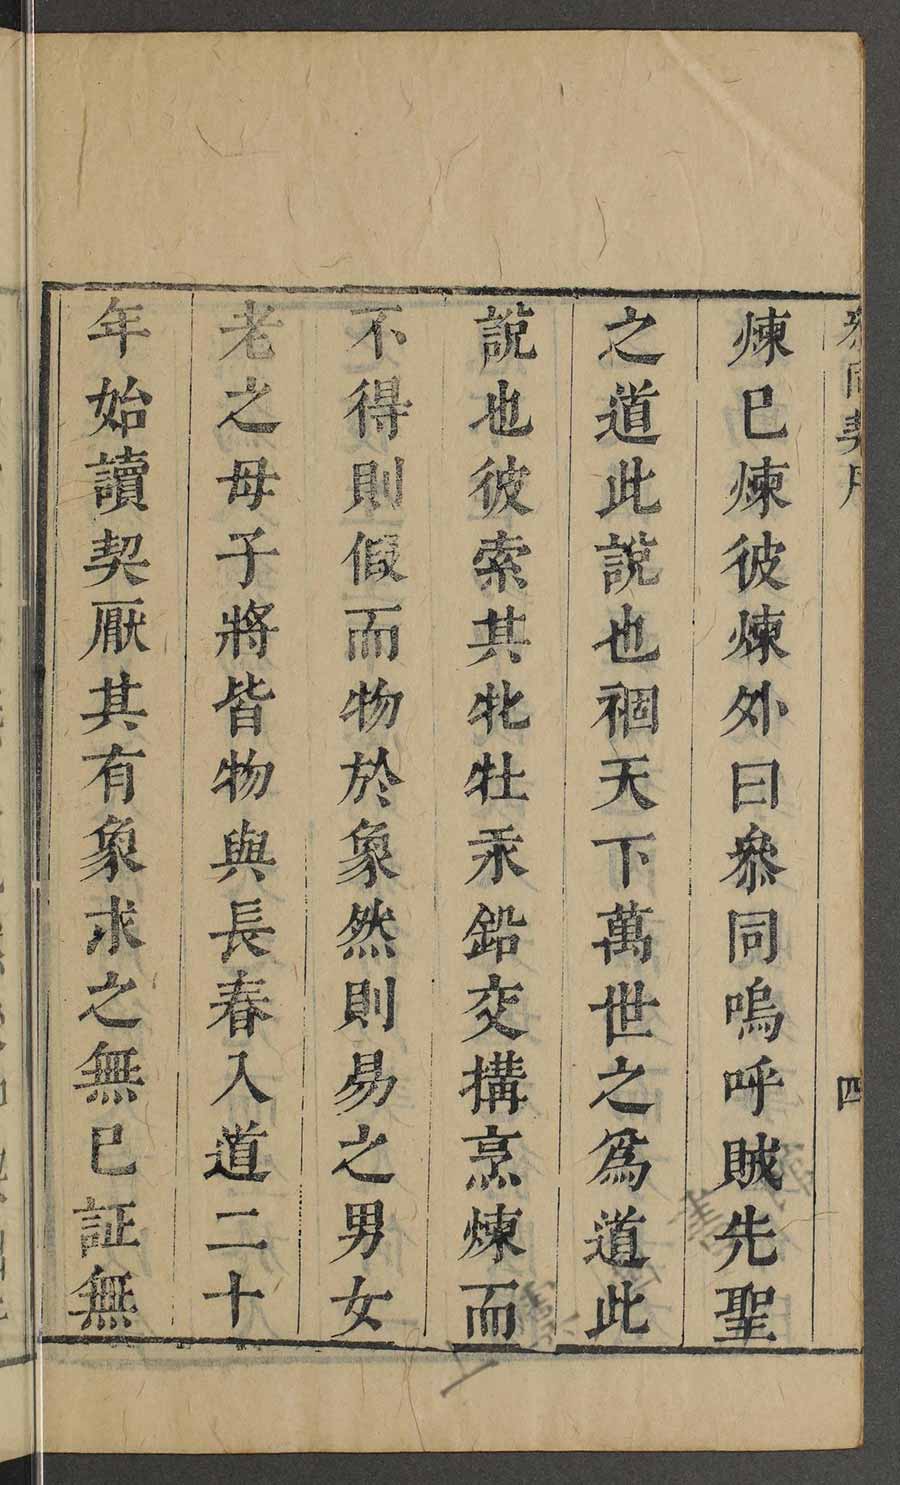 煉已煉彼煉外曰叅同嗚呼賊先聖
之道此說也禍天下萬世之爲道此
說也彼索其牝牡汞鉛交搆烹煉而
不得則假而物於象然則易之男女
老之母子將皆物與長春入道二十
年始讀契厭其有象求之無已証無
四